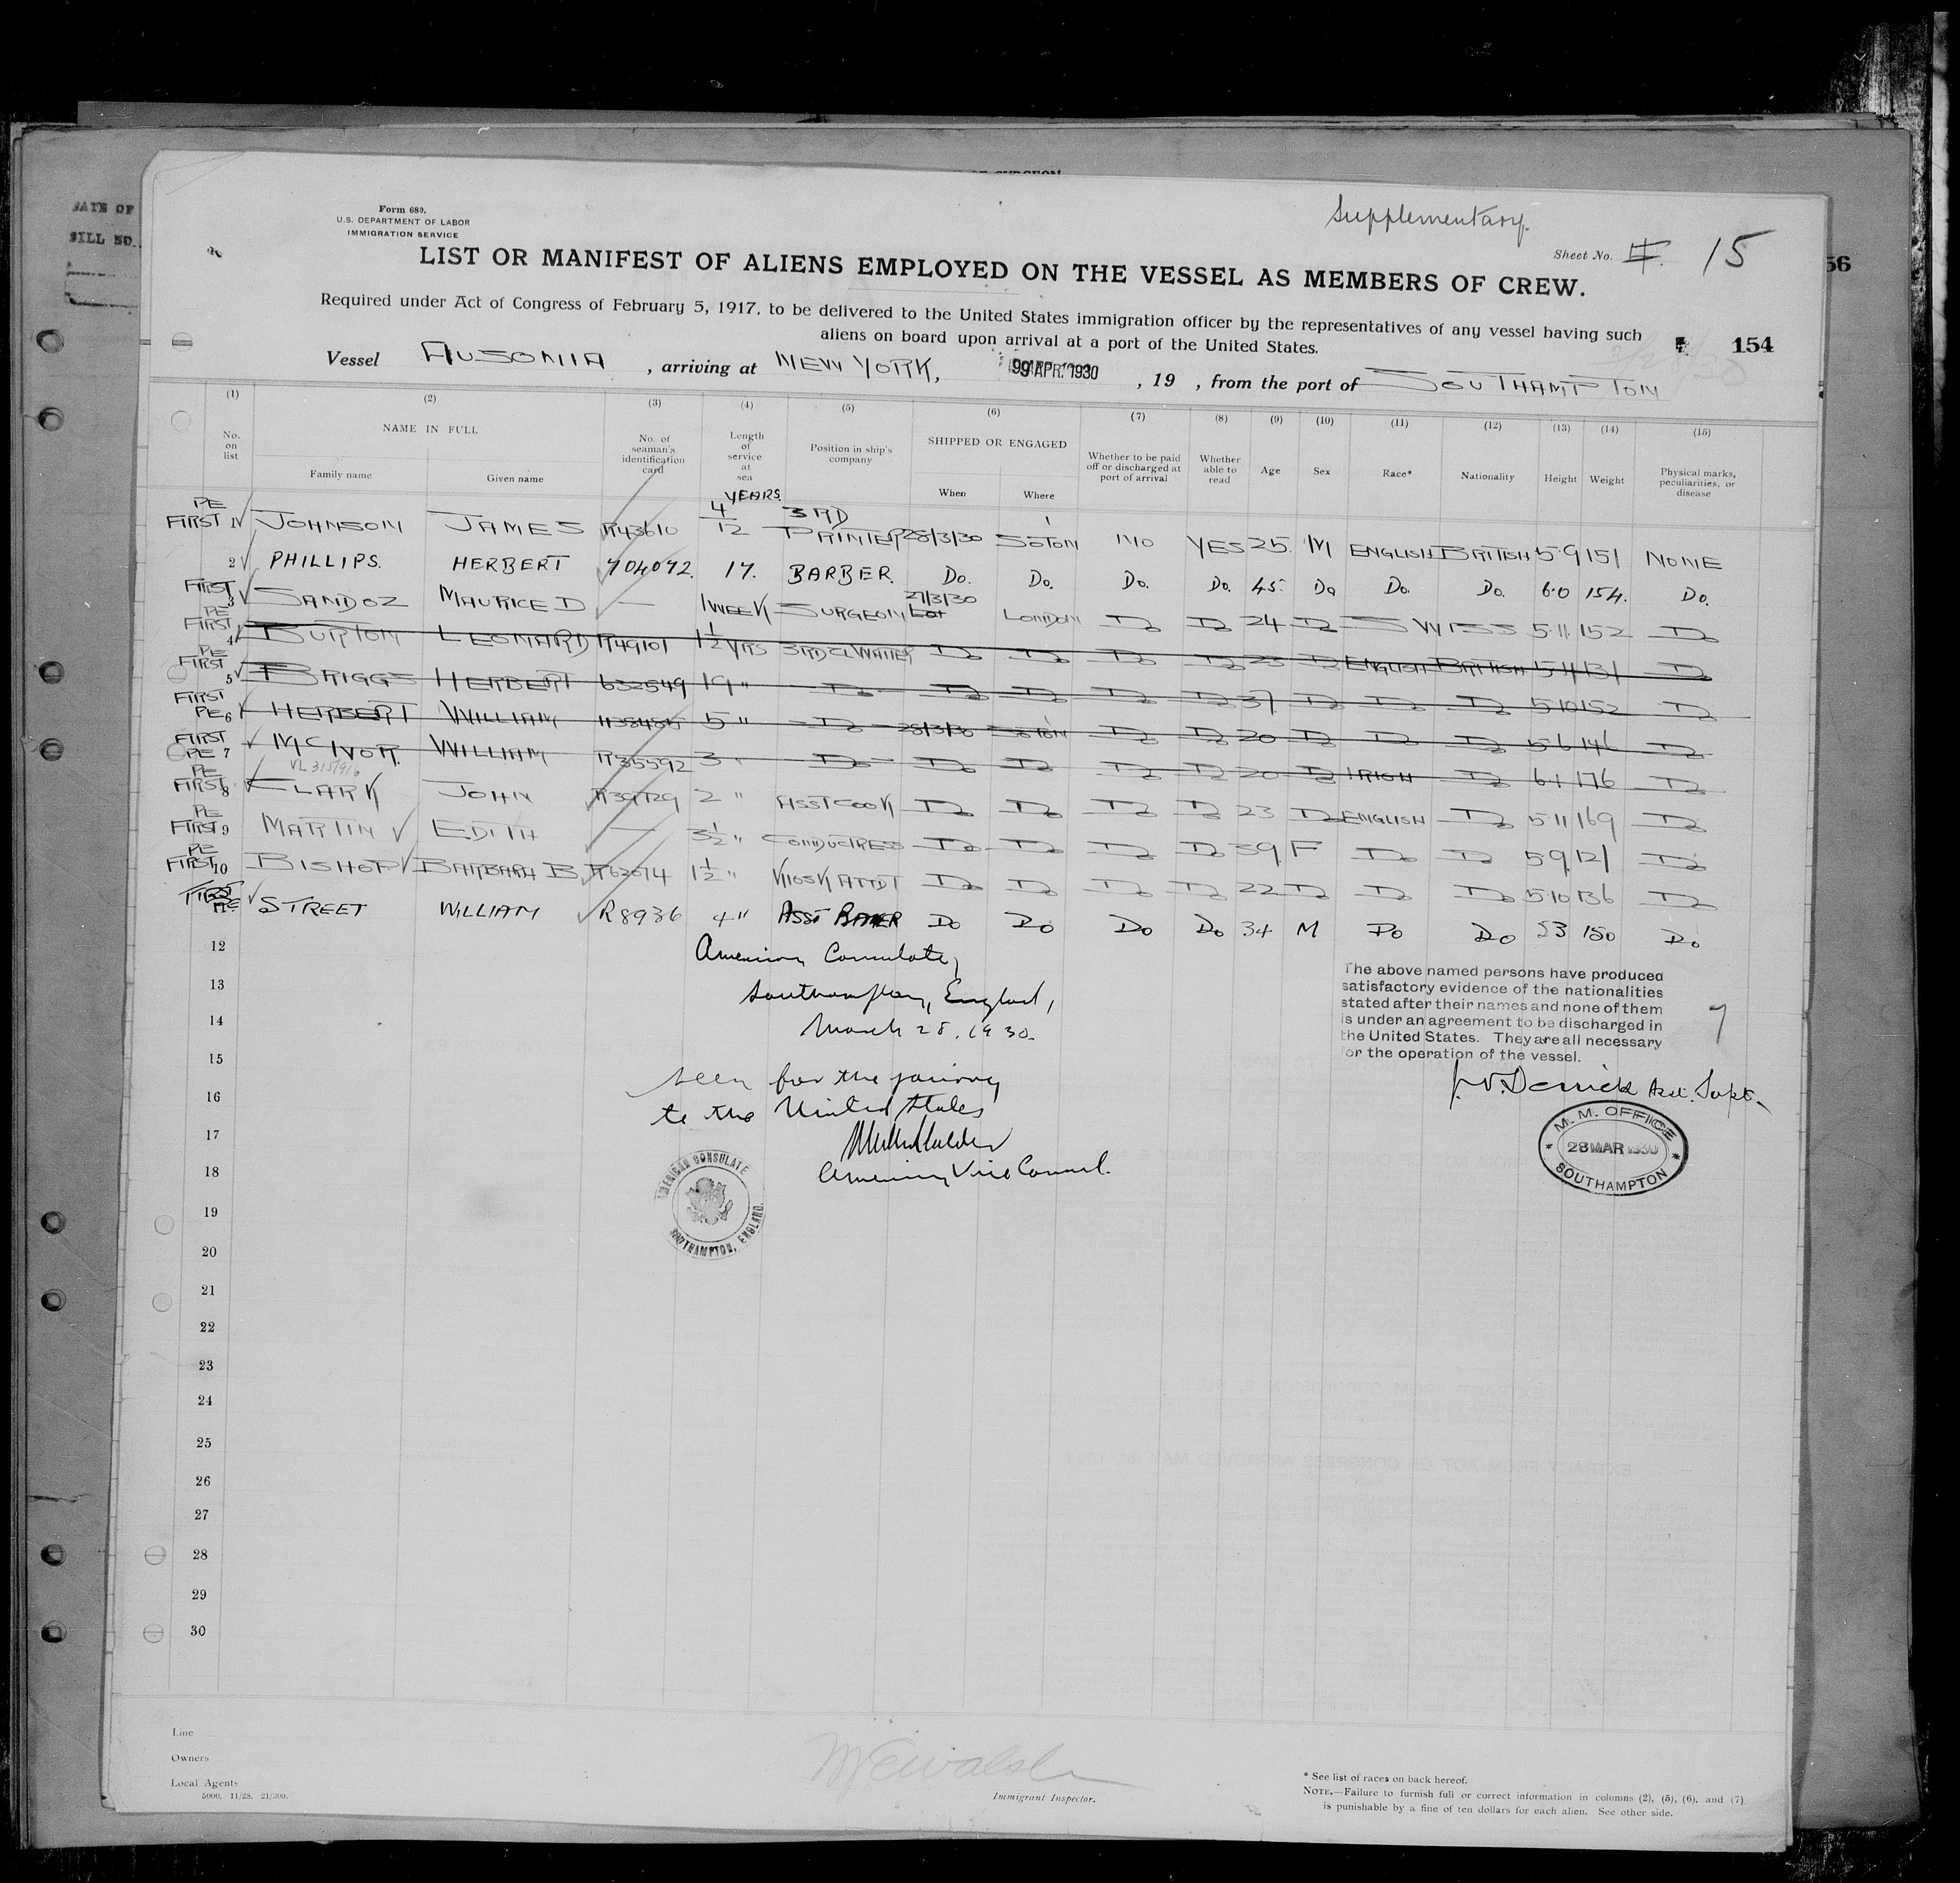 DATE OF
BILL NO.
56
Form 689.
U.S. DEPARTMENT OF LABOR
IMMIGRATION SERVICE
Supplementary.
Sheet No. 15
LIST OR MANIFEST OF ALIENS EMPLOYED ON THE VESSEL AS MEMBERS OF CREW.
Required under Act of Congress of February 5, 1917, to be delivered to the United States immigration officer by the representatives of any vessel having such
aliens on board upon arrival at a port of the United States.
154
Vessel AUSONIA, arriving at NEW YORK, APR. 1930, 19 , from the port of SOUTHAMPTON
(1) (2) (3) (4) (5) (6) (7) (8) (9) (10) (11) (12) (13) (14) (15)
No. on list NAME IN FULL Family name Given name No. of seaman's identification card Length of service at sea Position in ship's company SHIPPED OR ENGAGED When Where Whether to be paid off or discharged at port of arrival Whether able to read Age Sex Race* Nationality Height Weight Physical marks, peculiarities, or disease
YEARS
PE FIRST 1 JOHNSON JAMES R43610 4/12 3RD PRINTER 28/3/30 SOTON NO YES 25 M ENGLISH BRITISH 5·9 151 NONE
2 PHILLIPS. HERBERT 704072 17. BARBER. Do. Do. Do. Do. 45. Do Do. Do. 6·0 154. Do.
FIRST 3 SANDOZ MAURICE D — 1 WEEK SURGEON 27/3/30 LONDON Do Do 24 Do SWISS 5·11 152 Do
PE FIRST 4 BURTON LEONARD R49101 1½ YRS 3RD CL WAITER Do Do Do Do 23 Do ENGLISH BRITISH 5·11 131 Do
PE FIRST 5 BRIGGS HERBERT 632549 19 " Do Do Do Do Do 37 Do Do Do 5·10 152 Do
FIRST PE 6 HERBERT WILLIAM 5 " Do 28/3/30 SOTON Do Do 20 Do Do Do 5·6 146 Do
FIRST PE 7 McIVOR WILLIAM R35592 3 " Do Do Do Do Do 20 Do IRISH Do 6·1 176 Do
VL 315/916
PE FIRST 8 CLARK JOHN R39729 2 " ASST COOK Do Do Do Do 23 Do ENGLISH Do 5·11 169 Do
PE FIRST 9 MARTIN EDITH — 3½ " CONDUCTRESS Do Do Do Do 39 F Do Do 5·9 121 Do
PE FIRST 10 BISHOP BARBARA B. R62074 1½ " KIOSK ATTDT Do Do Do Do 22 Do Do Do 5·10 136 Do
FIRST STREET WILLIAM R8936 4 " ASST BAKER Do Do Do Do 34 M Do Do 53 150 Do
12
13
14
15
16
17
18
19
20
21
22
23
24
25
26
27
28
29
30
American Consulate,
Southampton, England,
March 28, 1930.
Seen for the journey
to the United States
American Vice Consul.
AMERICAN CONSULATE
SOUTHAMPTON, ENGLAND.
The above named persons have produced
satisfactory evidence of the nationalities
stated after their names and none of them
is under an agreement to be discharged in
the United States. They are all necessary
for the operation of the vessel.
7
Asst. Supt.
M. M. OFFICE
28 MAR 1930
SOUTHAMPTON
Line
Owners
Local Agents
5000. 11/28. 21/509.
Immigrant Inspector.
* See list of races on back hereof.
NOTE.—Failure to furnish full or correct information in columns (2), (5), (6), and (7)
is punishable by a fine of ten dollars for each alien. See other side.